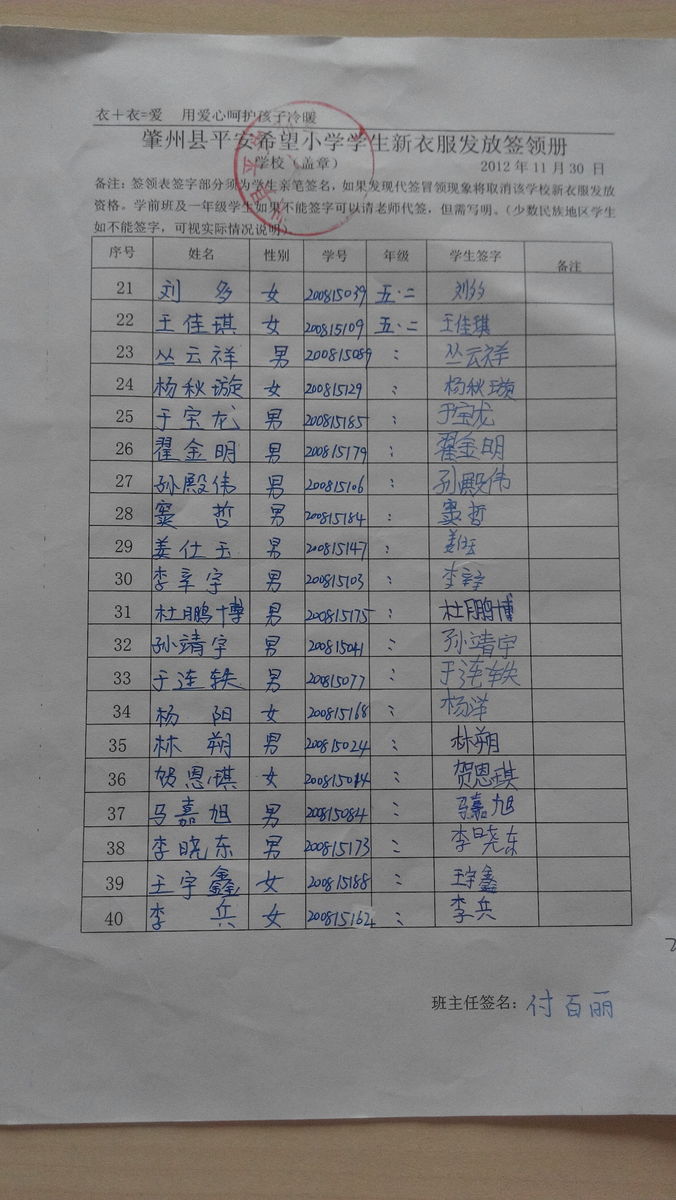 衣＋衣=爱 用爱心呵护孩子冷暖
肇州县平安希望小学学生新衣服发放签领册
学校（盖章） 2012 年 11 月 30 日
备注：签领表签字部分须为学生亲笔签名，如果发现代签冒领现象将取消该学校新衣服发放
资格。学前班及一年级学生如果不能签字可以请老师代签，但需写明。（少数民族地区学生
如不能签字，可视实际情况说明）
序号 姓名 性别 学号 年级 学生签字 备注
21 刘多 女 200815039 五·二 刘多
22 王佳琪 女 200815109 五·二 王佳琪
23 丛云祥 男 200815089 : 丛云祥
24 杨秋璇 女 200815129 : 杨秋璇
25 于宝龙 男 200815185 : 于宝龙
26 翟金明 男 200815179 : 翟金明
27 孙殿伟 男 200815106 : 孙殿伟
28 窦哲 男 200815184 : 窦哲
29 姜仕玉 男 200815147 : 姜仕玉
30 李宇 男 200815103 : 李宇
31 杜鹏博 男 200815175 : 杜鹏博
32 孙靖宇 男 200815041 : 孙靖宇
33 于连轶 男 200815077 : 于连轶
34 杨阳 女 200815168 : 杨洋
35 林朔 男 200815024 : 林朔
36 贺恩琪 女 200815044 : 贺恩琪
37 马嘉旭 男 200815084 : 马嘉旭
38 李晓东 男 200815173 : 李晓东
39 王宇鑫 女 200815188 : 王宇鑫
40 李兵 女 200815162 : 李兵
班主任签名：付百丽